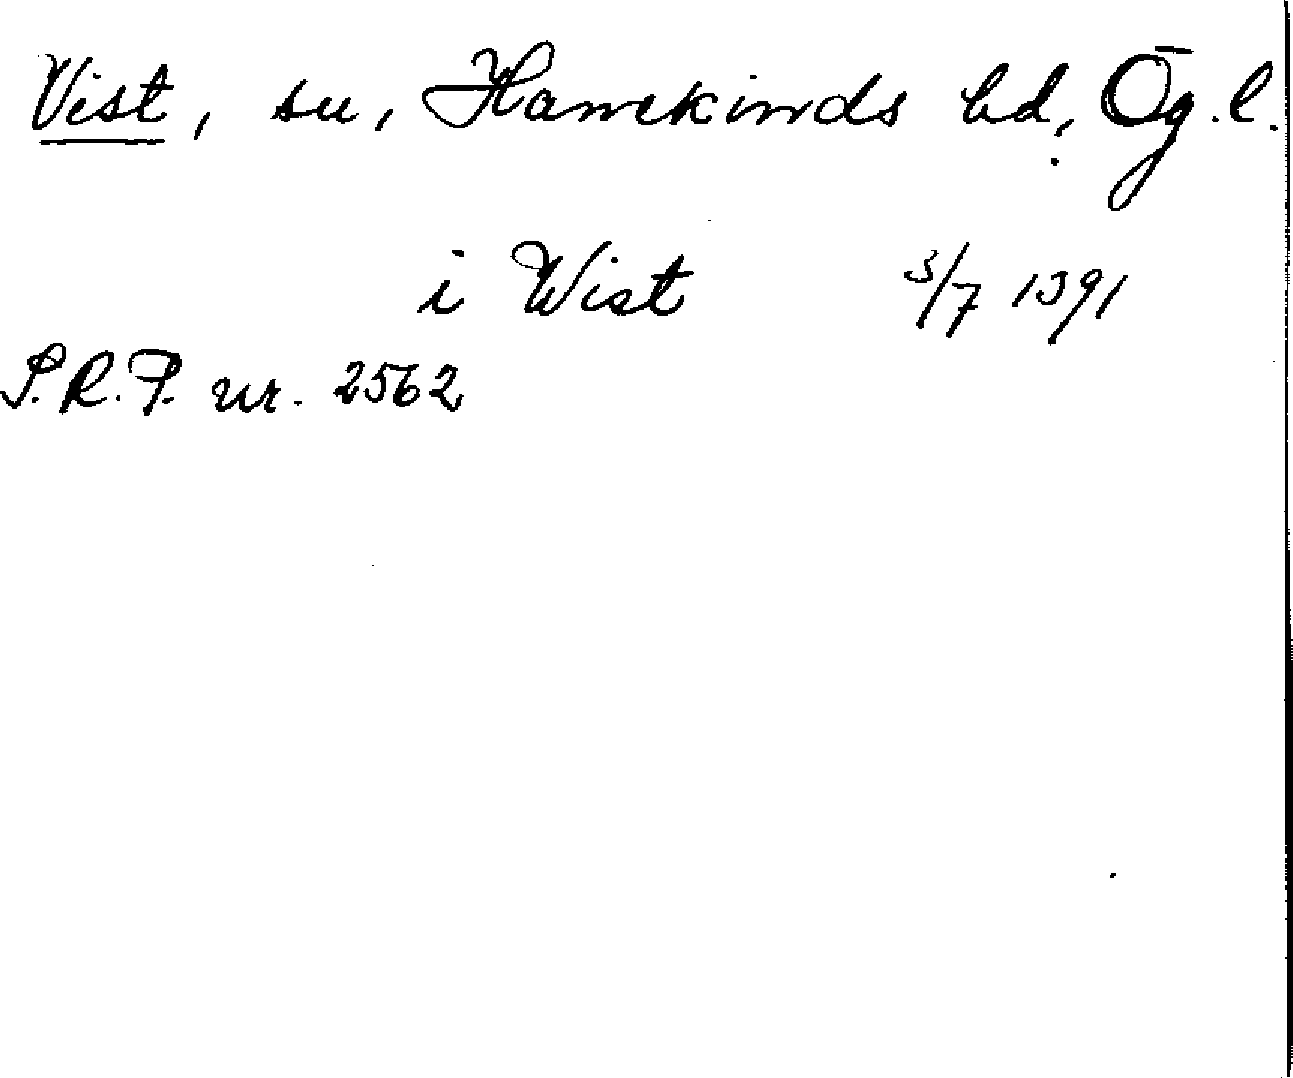 Vist, sn, Hanekinds hd, Ög.l.
i Wist 3/7 1391
S.R.P. nr. 2562